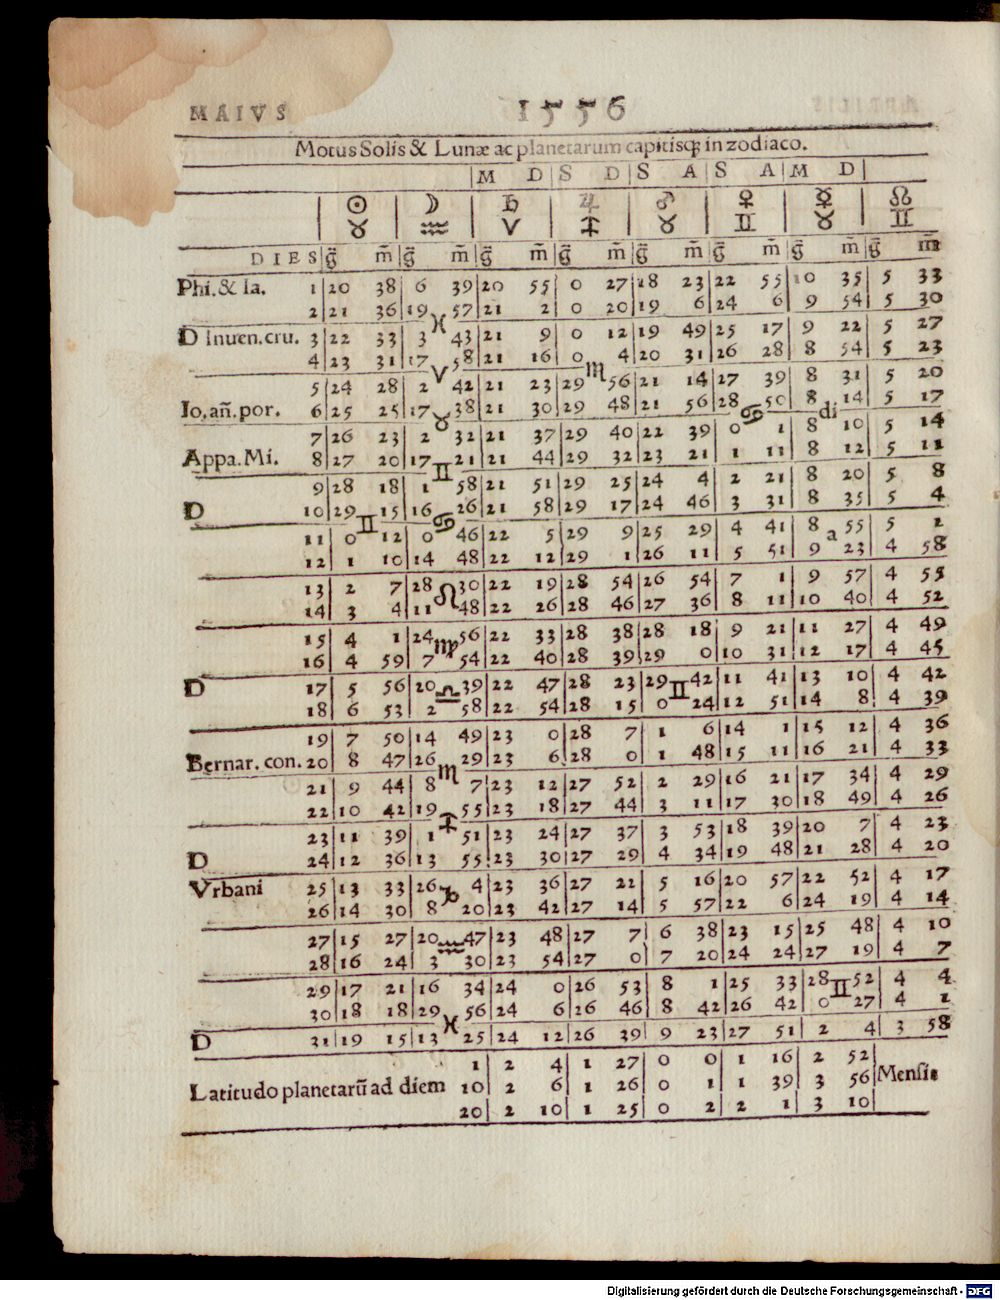 MAIVS 1556
Motus Solis & Lunæ ac planetarum capitisq; in zodiaco.
M D S D S A S A M D
☉ ☽ ♄ ♃ ♂ ♀ ☿ ☊
♉ ♒ ♈ ♐ ♉ ♊ ♉ ♊
DIES g̃ m̃ g̃ m̃ g̃ m̃ g̃ m̃ g̃ m̃ g̃ m̃ g̃ m̃ g̃ m̃
Phi. & Ia. 1 20 38 6 39 20 55 0 27 18 23 22 55 10 35 5 33
2 21 36 19 57 21 2 0 20 19 6 24 6 9 54 5 30
D Inuen.cru. 3 22 33 3 ♓ 43 21 9 0 12 19 49 25 17 9 22 5 27
4 23 31 17 58 21 16 0 4 20 31 26 28 8 54 5 23
5 24 28 2 ♈ 42 21 23 29 ♏ 56 21 14 27 39 8 31 5 20
Io. añ. por. 6 25 25 17 38 21 30 29 48 21 56 28 50 8 14 5 17
7 26 23 2 ♉ 32 21 37 29 40 22 39 0 ♋ 1 8 di 10 5 14
Appa. Mi. 8 27 20 17 21 21 44 29 32 23 21 1 11 8 12 5 11
9 28 18 1 ♊ 58 21 51 29 25 24 4 2 21 8 20 5 8
D 10 29 15 16 26 21 58 29 17 24 46 3 31 8 35 5 4
11 0 ♊ 12 0 ♋ 46 22 5 29 9 25 29 4 41 8 a 55 5 1
12 1 10 14 48 22 12 29 1 26 11 5 51 9 23 4 58
13 2 7 28 30 22 19 28 54 26 54 7 1 9 57 4 55
14 3 4 11 ♌ 48 22 26 28 46 27 36 8 11 10 40 4 52
15 4 1 24 56 22 33 28 38 28 18 9 21 11 27 4 49
16 4 59 7 ♍ 54 22 40 28 39 29 0 10 31 12 17 4 45
D 17 5 56 20 39 22 47 28 23 29 42 11 41 13 10 4 42
18 6 53 2 ♎ 58 22 54 28 15 0 ♊ 24 12 51 14 8 4 39
19 7 50 14 49 23 0 28 7 1 6 14 1 15 12 4 36
Bernar. con. 20 8 47 26 29 23 6 28 0 1 48 15 11 16 21 4 33
21 9 44 8 ♏ 7 23 12 27 52 2 29 16 21 17 34 4 29
22 10 42 19 55 23 18 27 44 3 11 17 30 18 49 4 26
23 11 39 1 ♐ 51 23 24 27 37 3 53 18 39 20 7 4 23
D 24 12 36 13 55 23 30 27 29 4 34 19 48 21 28 4 20
Vrbani 25 13 33 26 4 23 36 27 22 5 16 20 57 22 52 4 17
26 14 30 8 ♑ 20 23 42 27 14 5 57 22 6 24 19 4 14
27 15 27 20 47 23 48 27 7 6 38 23 15 25 48 4 10
28 16 24 3 ♒ 30 23 54 27 0 7 20 24 24 27 19 4 7
29 17 21 16 34 24 0 26 53 8 1 25 33 28 52 4 4
30 18 18 29 56 24 6 26 46 8 42 26 42 0 ♊ 27 4 1
D 31 19 15 13 ♓ 25 24 12 26 39 9 23 27 51 2 4 3 58
1 2 4 1 27 0 0 1 16 2 52
Latitudo planetarũ ad diem 10 2 6 1 26 0 1 1 39 3 56 Mensis
20 2 10 1 25 0 2 2 1 3 10
Digitalisierung gefördert durch die Deutsche Forschungsgemeinschaft - DFG